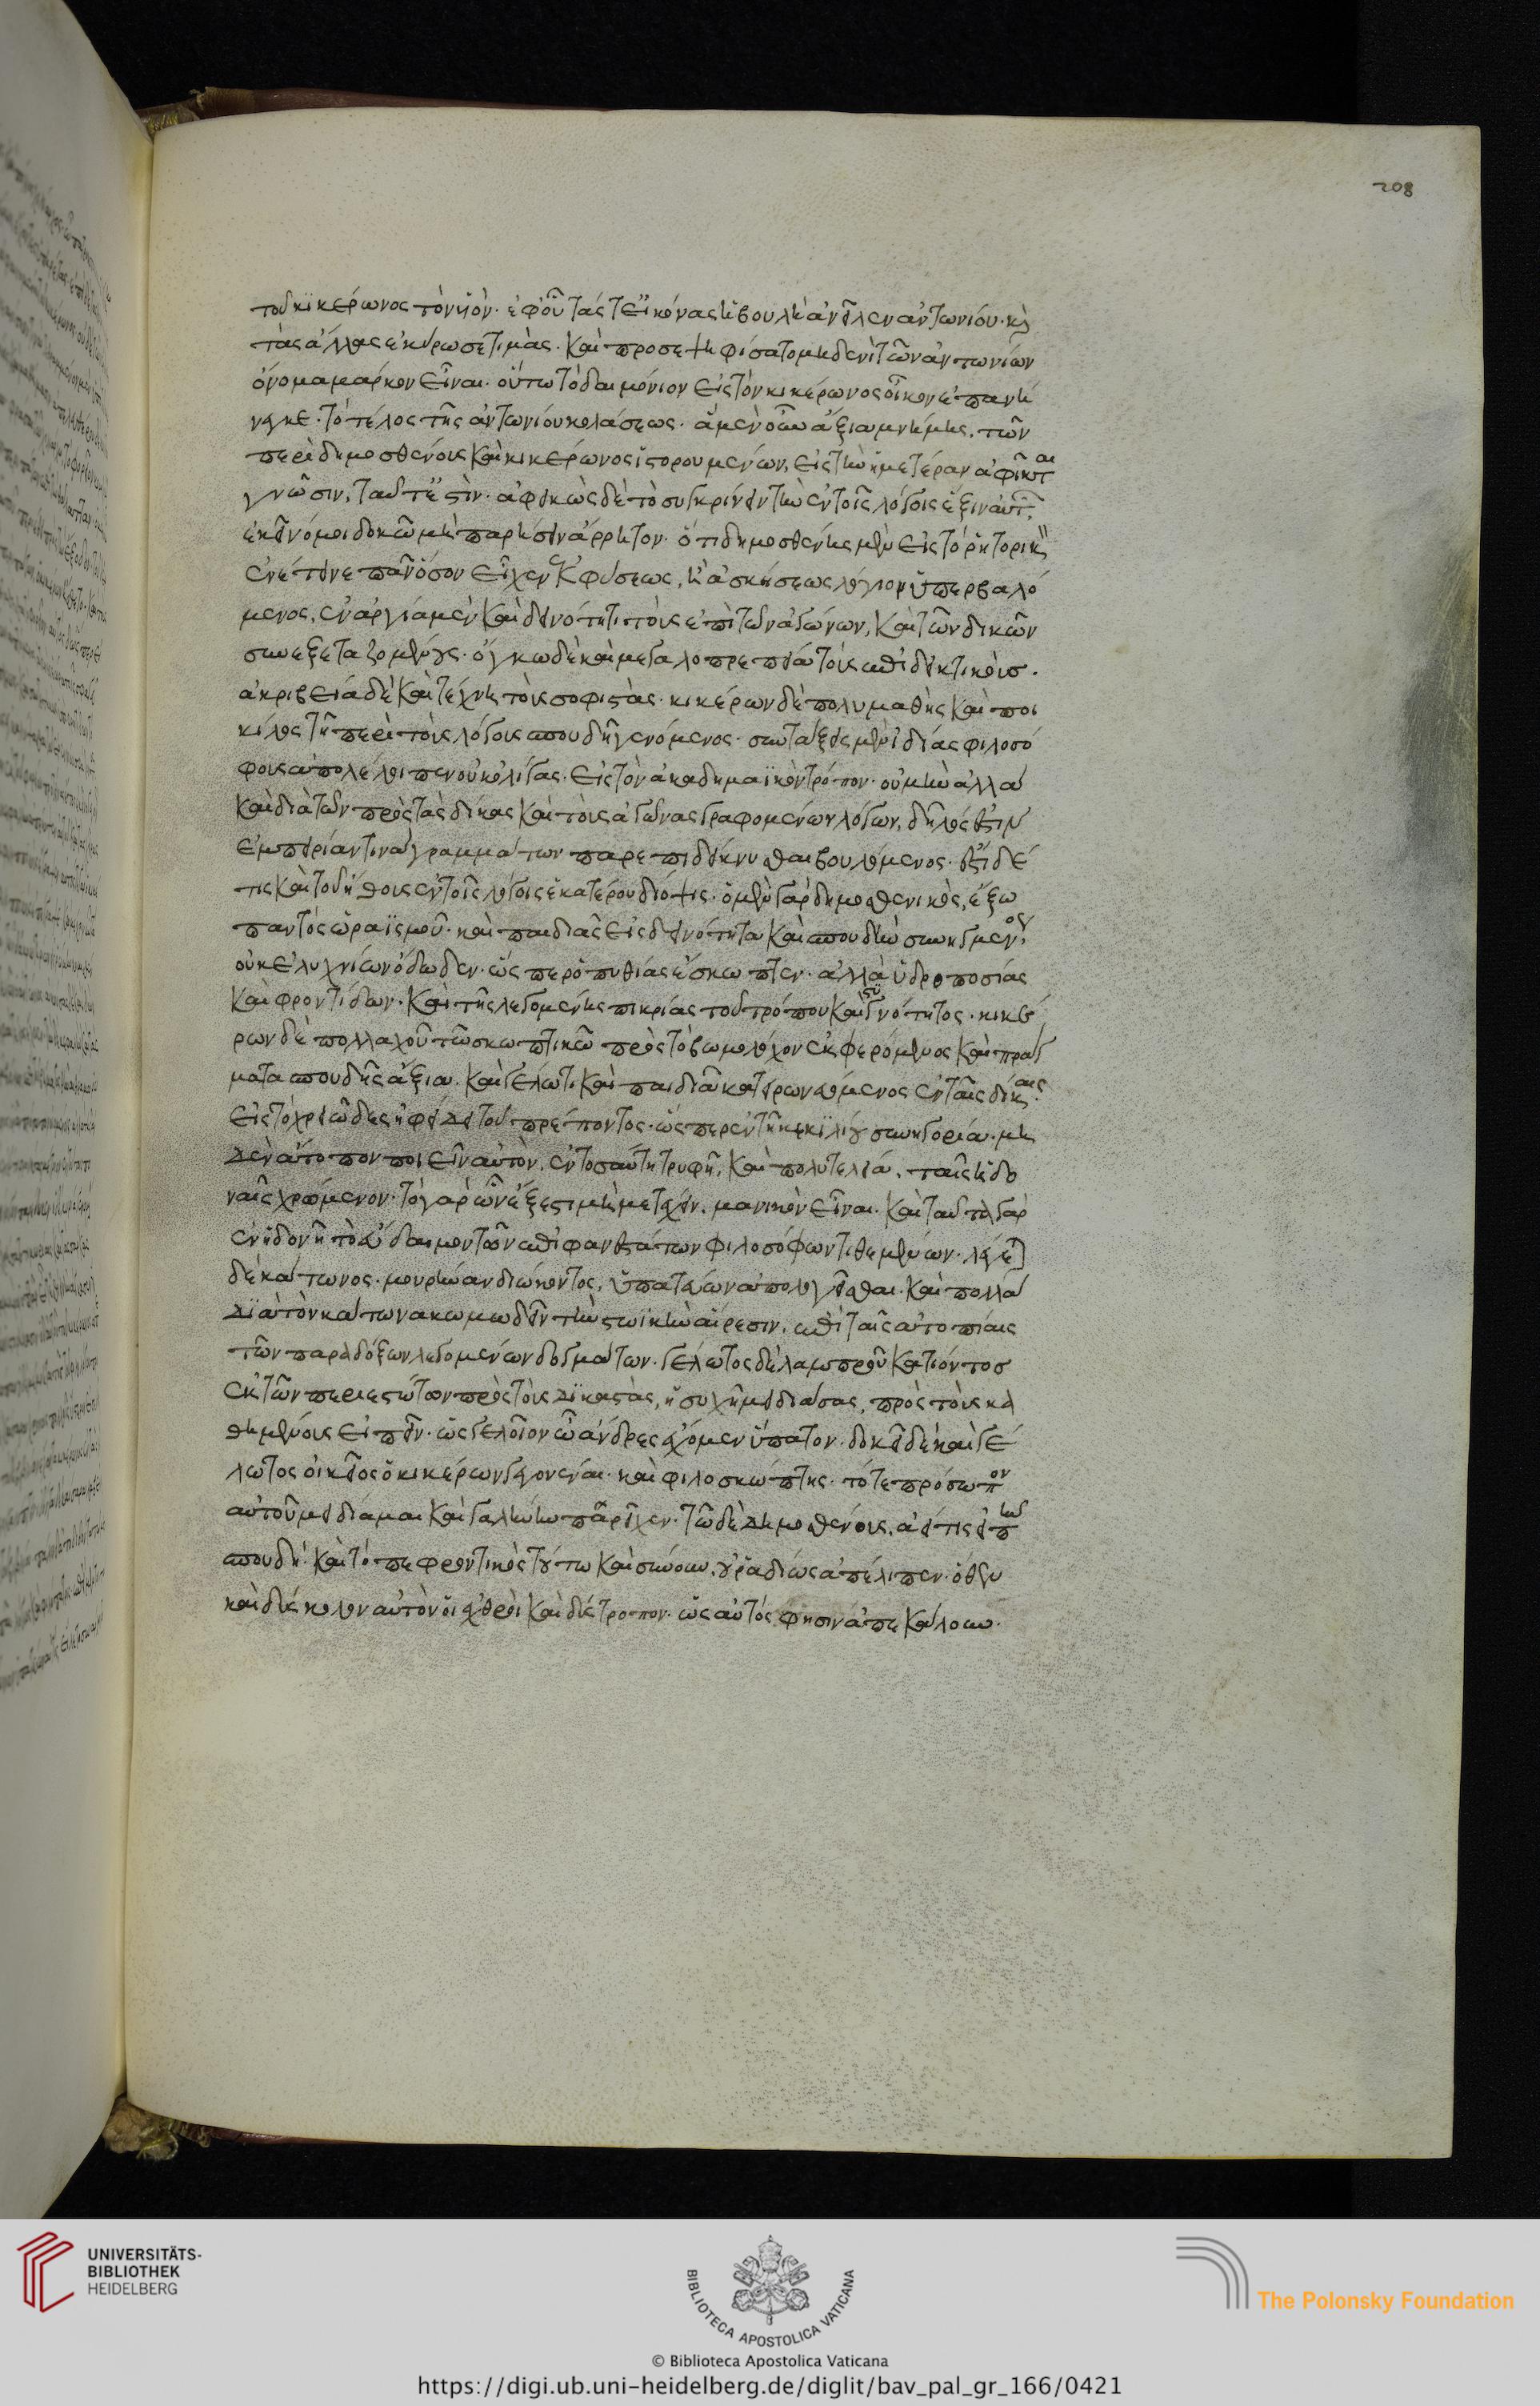 208
τοῦ κικέρωνος τὸν υἱὸν· ἐφ' οὗ τάς τε εἰκόνας ἡ βουλὴ ἀνεῖλεν ἀντωνίου· κὶ
τὰς ἄλλας ἐκύρωσε τιμὰς· καὶ προσεψηφίσατο μηδενὶ τῶν ἀντωνίων
ὄνομα μαρκον εἶναι· οὕτω τὸ δαιμόνιον εἰς τὸν κικέρωνος οἶκον ἐπανή
νεγκε· τὸ τέλος τῆς ἀντωνίου κολάσεως· ἃ μὲν οὖν ἄξια μνήμης, τῶν
περὶ δημοσθένους καὶ κικέρωνος ἱστορουμένων, εἰς τὴν ἡμετέραν ἀφῖκται
γνῶσιν, ταῦτ' ἐστὶν· ἀφεικὼς δὲ τὸ συγκρίνειν τὴν ἐν τοῖς λόγοις ἕξιν αὐτ
ἐκεῖνό μοι δοκῶ μὴ παρήσειν ἄρρητον· ὅτι δημοσθένης μὲν εἰς τὸ ῥητορικ
ἐνέτεινε πᾶν ὅσον εἶχεν ἐκ φύσεως, ἢ ἀσκήσεως λόγιον ὑπερβαλό
μενος, ἐναργία μὲν καὶ δεινότητι τοὺς ἐπὶ τῶν ἀγώνων, καὶ τῶν δικῶν
συνεξεταζομένους· ὄγκω δὲ καὶ μεγαλοπρεπεία τοὺς ἐπιδεικτικοὺσ·
ἀκριβεία δὲ καὶ τέχνη τοὺς σοφιστὰς· κικέρων δὲ πολυμαθὴς καὶ ποι
κίλος τῆ περὶ τοὺς λόγους σπουδῆ γενόμενος· συντάξεις μὲν ἰδίας φιλοσό
φους ἀπολέλοιπεν οὐκ ὀλίγας· εἰς τὸν ἀκαδημαϊκὸν τρόπον· οὐ μὴν ἀλλὰ
καὶ διὰ τῶν πρὸς τὰς δίκας καὶ τοὺς ἀγῶνας γραφομένων λόγων, δῆλός ἐστιν
ἐμπειρίαν τινὰ γραμμάτων παρεπιδείκνυσθαι βουλόμενος· ἔστι δέ
τις καὶ τοῦ ἤθους ἐν τοῖς λόγοις ἑκατέρου δίοψις· ὁ μὲν γὰρ δημοσθενικὸς, ἔξω
παντὸς ὡραϊσμοῦ· καὶ παιδιᾶς εἰς δεινότητα καὶ σπουδὴν συνηγμένος
οὐκ ἐλυχνίων ὄδωδεν· ὥς περ ὁ πυθίας ἔσκωπτεν· ἀλλὰ ὑδροποσίας
καὶ φροντίδων· καὶ τῆς λεγομένης πικρίας τοῦ τρόπου καὶ στυγνότητος· κικέ
ρων δὲ πολλαχοῦ τῶ σκωπτικῶ πρὸς τὸ βωμολόχον ἐκφερόμενος καὶ πράγ
ματα σπουδῆς ἄξια· καὶ γέλωτι καὶ παιδιᾶ κατειρωνευόμενος ἐν ταῖς δίκαις
εἰς τὸ χρειῶδες ἠφείδει τοῦ πρέποντος· ὥς περ ἐν τῆ κεκϊλίου συνηγορία· μη
δὲν ἄτοπον ποιεῖν αὐτὸν, ἐν τοσαύτη τρυφῆ, καὶ πολυτελεία, ταῖς ἡδο
ναῖς χρώμενον· τὸ γὰρ ὧν ἔξεστι μὴ μετέχειν, μανικὸν εἶναι· καὶ ταῦτα γὰρ
ἐν ἡδονῆ τὸ εὐδαιμον τῶν ἐπιφανεστάτων φιλοσόφων τιθεμένων· λέγε
δὲ κάτωνος· μουρήναν διώκοντος, ὕπατος ὢν ἀπολογεῖσθαι· καὶ πολλὰ
δϊὰ τὸν κάτωνα κωμωδεῖν τὴν στωϊκὴν αἵρεσιν, ἐπὶ ταῖς ἀτοπίαις
τῶν παραδόξων λεγομένων δογμάτων· γέλωτος δὲ λαμπροῦ κατιόντοσ
ἐκ τῶν περιεστώτων πρὸς τοὺς δϊκαστὰς, ἡσυχῆ μειδιάσας, πρὸς τοὺς κα
θημένους εἰπεῖν· ὡς γελοῖον ὦ ἄνδρες ἔχομεν ὕπατον· δοκεῖ δὲ καὶ γέ
λωτος οἰκεῖος ὁ κικέρων γεγονέναι· καὶ φιλοσκώπτης· τό τε πρόσωπον
αὐτοῦ μειδίαμα καὶ γαλήνην παρεῖχεν· τῶ δὲ δημοσθένους, ἀεί τις ἐπῆν
σπουδὴ· καὶ τὸ πεφροντικὸς τούτω καὶ σύννουν, οὐ ῥαδίως ἀπέλιπεν· ὅθεν
καὶ δύσκολον αὐτὸν οἱ ἐχθροὶ καὶ δύστροπον· ὡς αὐτός φησιν ἀπεκάλουν·
UNIVERSITÄTS-
BIBLIOTHEK
HEIDELBERG
BIBLIOTECA APOSTOLICA VATICANA
The Polonsky Foundation
© Biblioteca Apostolica Vaticana
https://digi.ub.uni-heidelberg.de/diglit/bav_pal_gr_166/0421